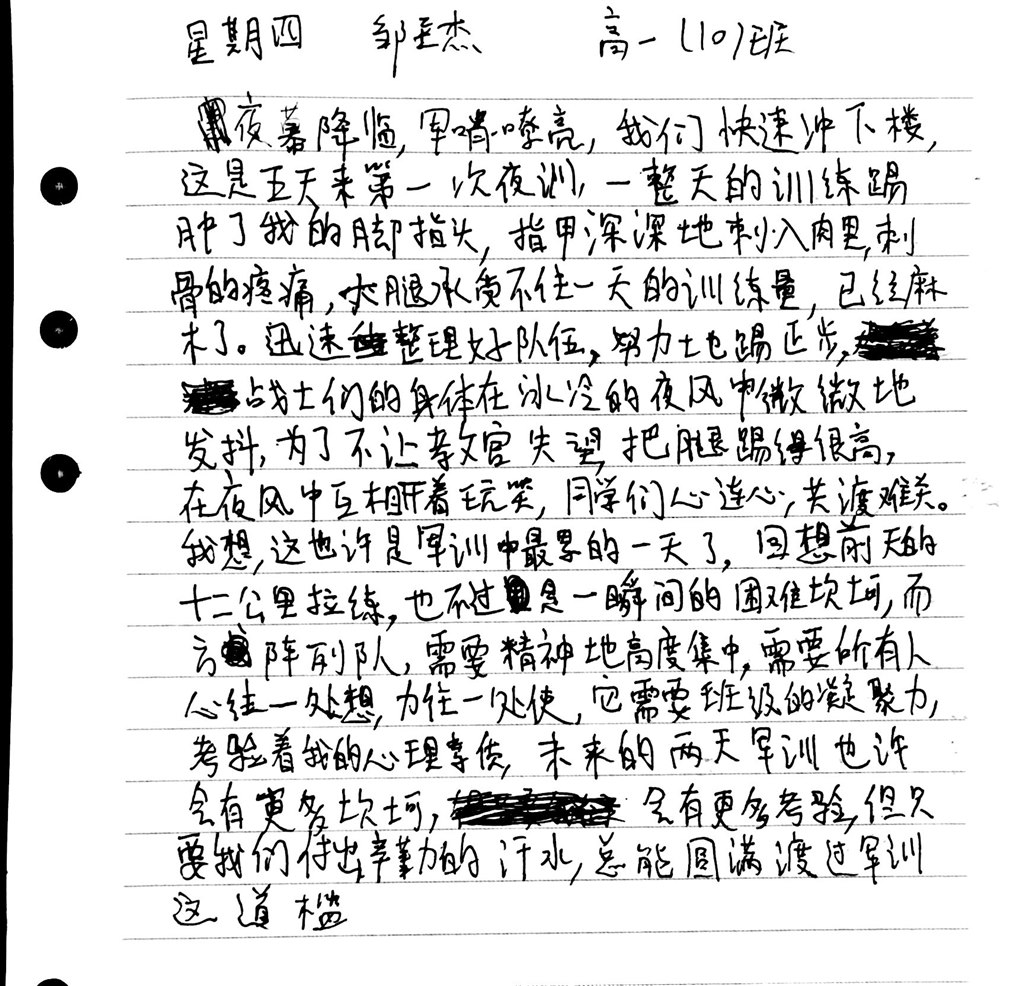 星期四 邹至杰 高一(10)班
夜幕降临,军哨嘹亮,我们快速冲下楼,
这是五天来第一次夜训,一整天的训练踢
肿了我的脚指头,指甲深深地刺入肉里,刺
骨的疼痛,大腿承受不住一天的训练量,已经麻
木了。迅速整理好队伍,努力地踢正步,
战士们的身体在冰冷的夜风中微微地
发抖,为了不让教官失望,把腿踢得很高,
在夜风中互相开着玩笑,同学们心连心,共渡难关。
我想,这也许是军训中最累的一天了,回想前天的
十二公里拉练,也不过是一瞬间的困难坎坷,而
方阵列队,需要精神地高度集中,需要所有人
心往一处想,力往一处使,它需要班级的凝聚力,
考验着我的心理素质,未来的两天军训也许
会有更多坎坷,会有更多考验,但只
要我们付出辛勤的汗水,总能圆满渡过军训
这道槛